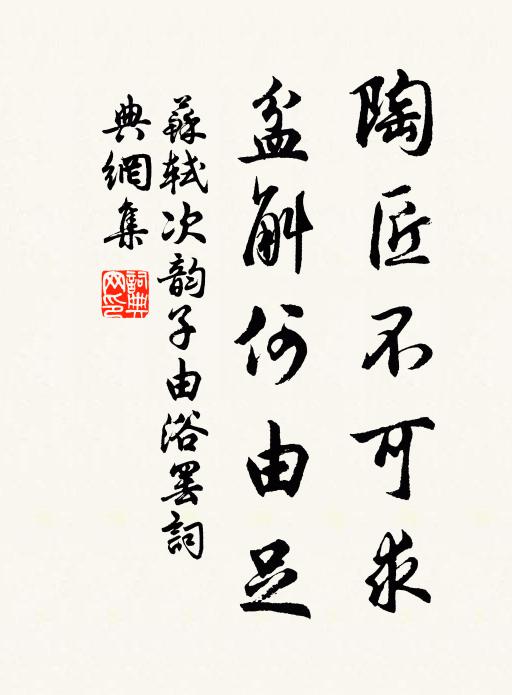 陶匠不可求
盆斛何由足
蘇軾次韵子由浴罢詞
典網集
詞典
网印